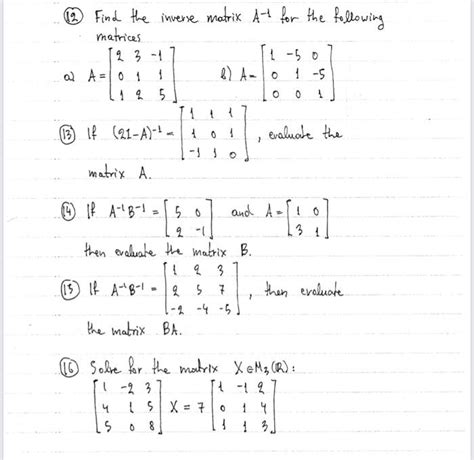 (12) Find the inverse matrix A⁻¹ for the following
matrices
a) A = [2 3 -1; 0 1 1; 1 2 5] b) A = [1 -5 0; 0 1 -5; 0 0 1]
(13) If (2I-A)⁻¹ = [1 1 1; 1 0 1; -1 1 0], evaluate the
matrix A.
(14) If A⁻¹B⁻¹ = [5 0; 2 -1] and A = [1 0; 3 1]
then evaluate the matrix B.
(15) If A⁻¹B⁻¹ = [1 2 3; 2 5 7; -2 -4 -5], then evaluate
the matrix BA.
(16) Solve for the matrix X∈M₃(R):
[1 -2 3; 4 1 5; 5 0 8] X = 7 [1 -1 2; 0 1 4; 1 1 3]